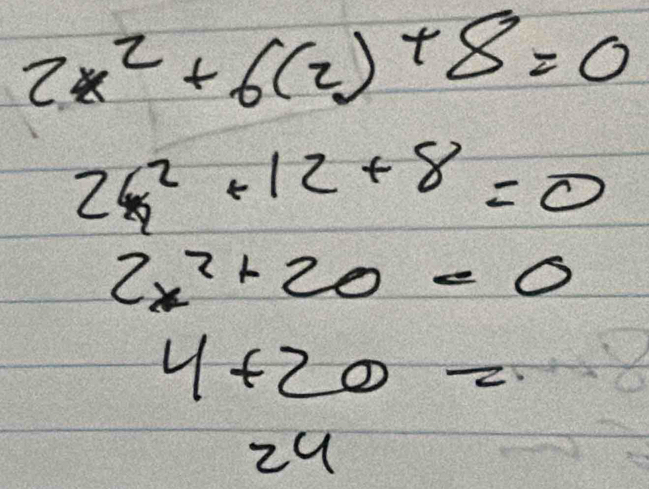 2x² + 6(2) + 8 = 0
2x² + 12 + 8 = 0
2x² + 20 = 0
4 + 20 =
24